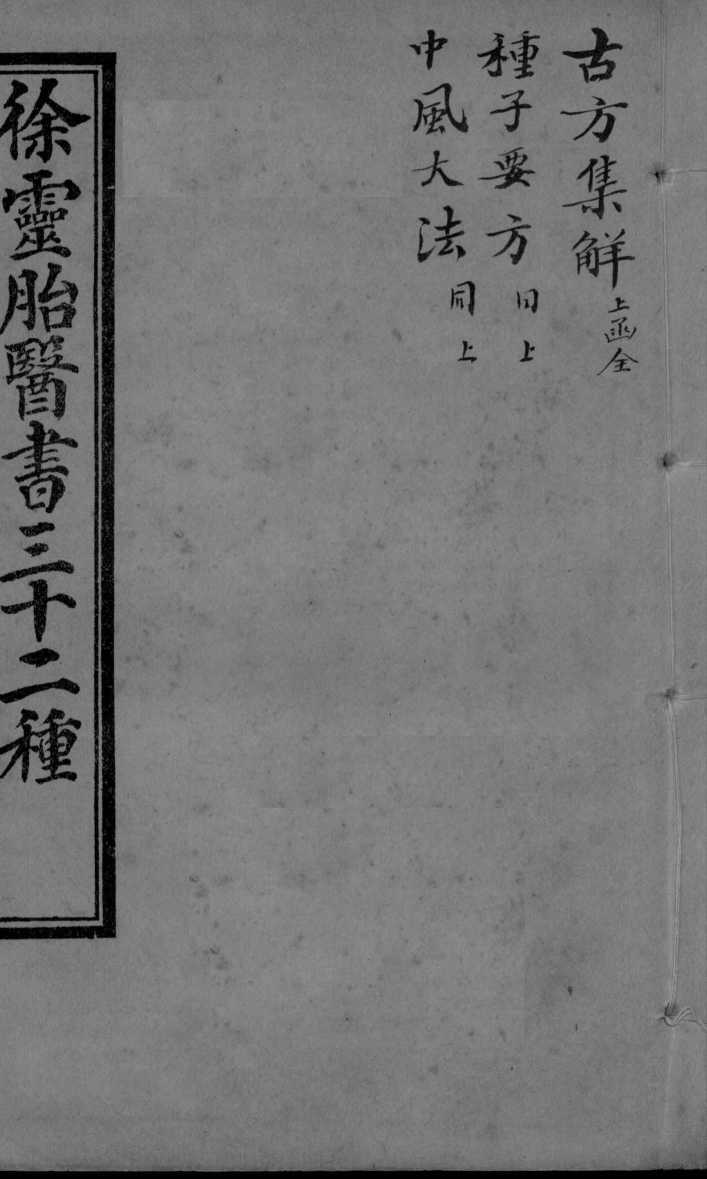 古方集解上函全
種子要方同上
中風大法同上
徐靈胎醫書三十二種